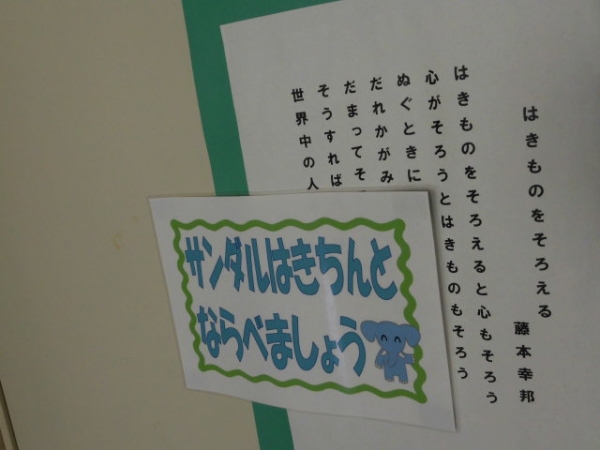 はきものをそろえる
藤本幸邦
はきものをそろえると心もそろう
心がそろうとはきものもそろう
ぬぐときに
だれかがみ
だまってそ
そうすれば
世界中の人
サンダルはきちんと
ならべましょう